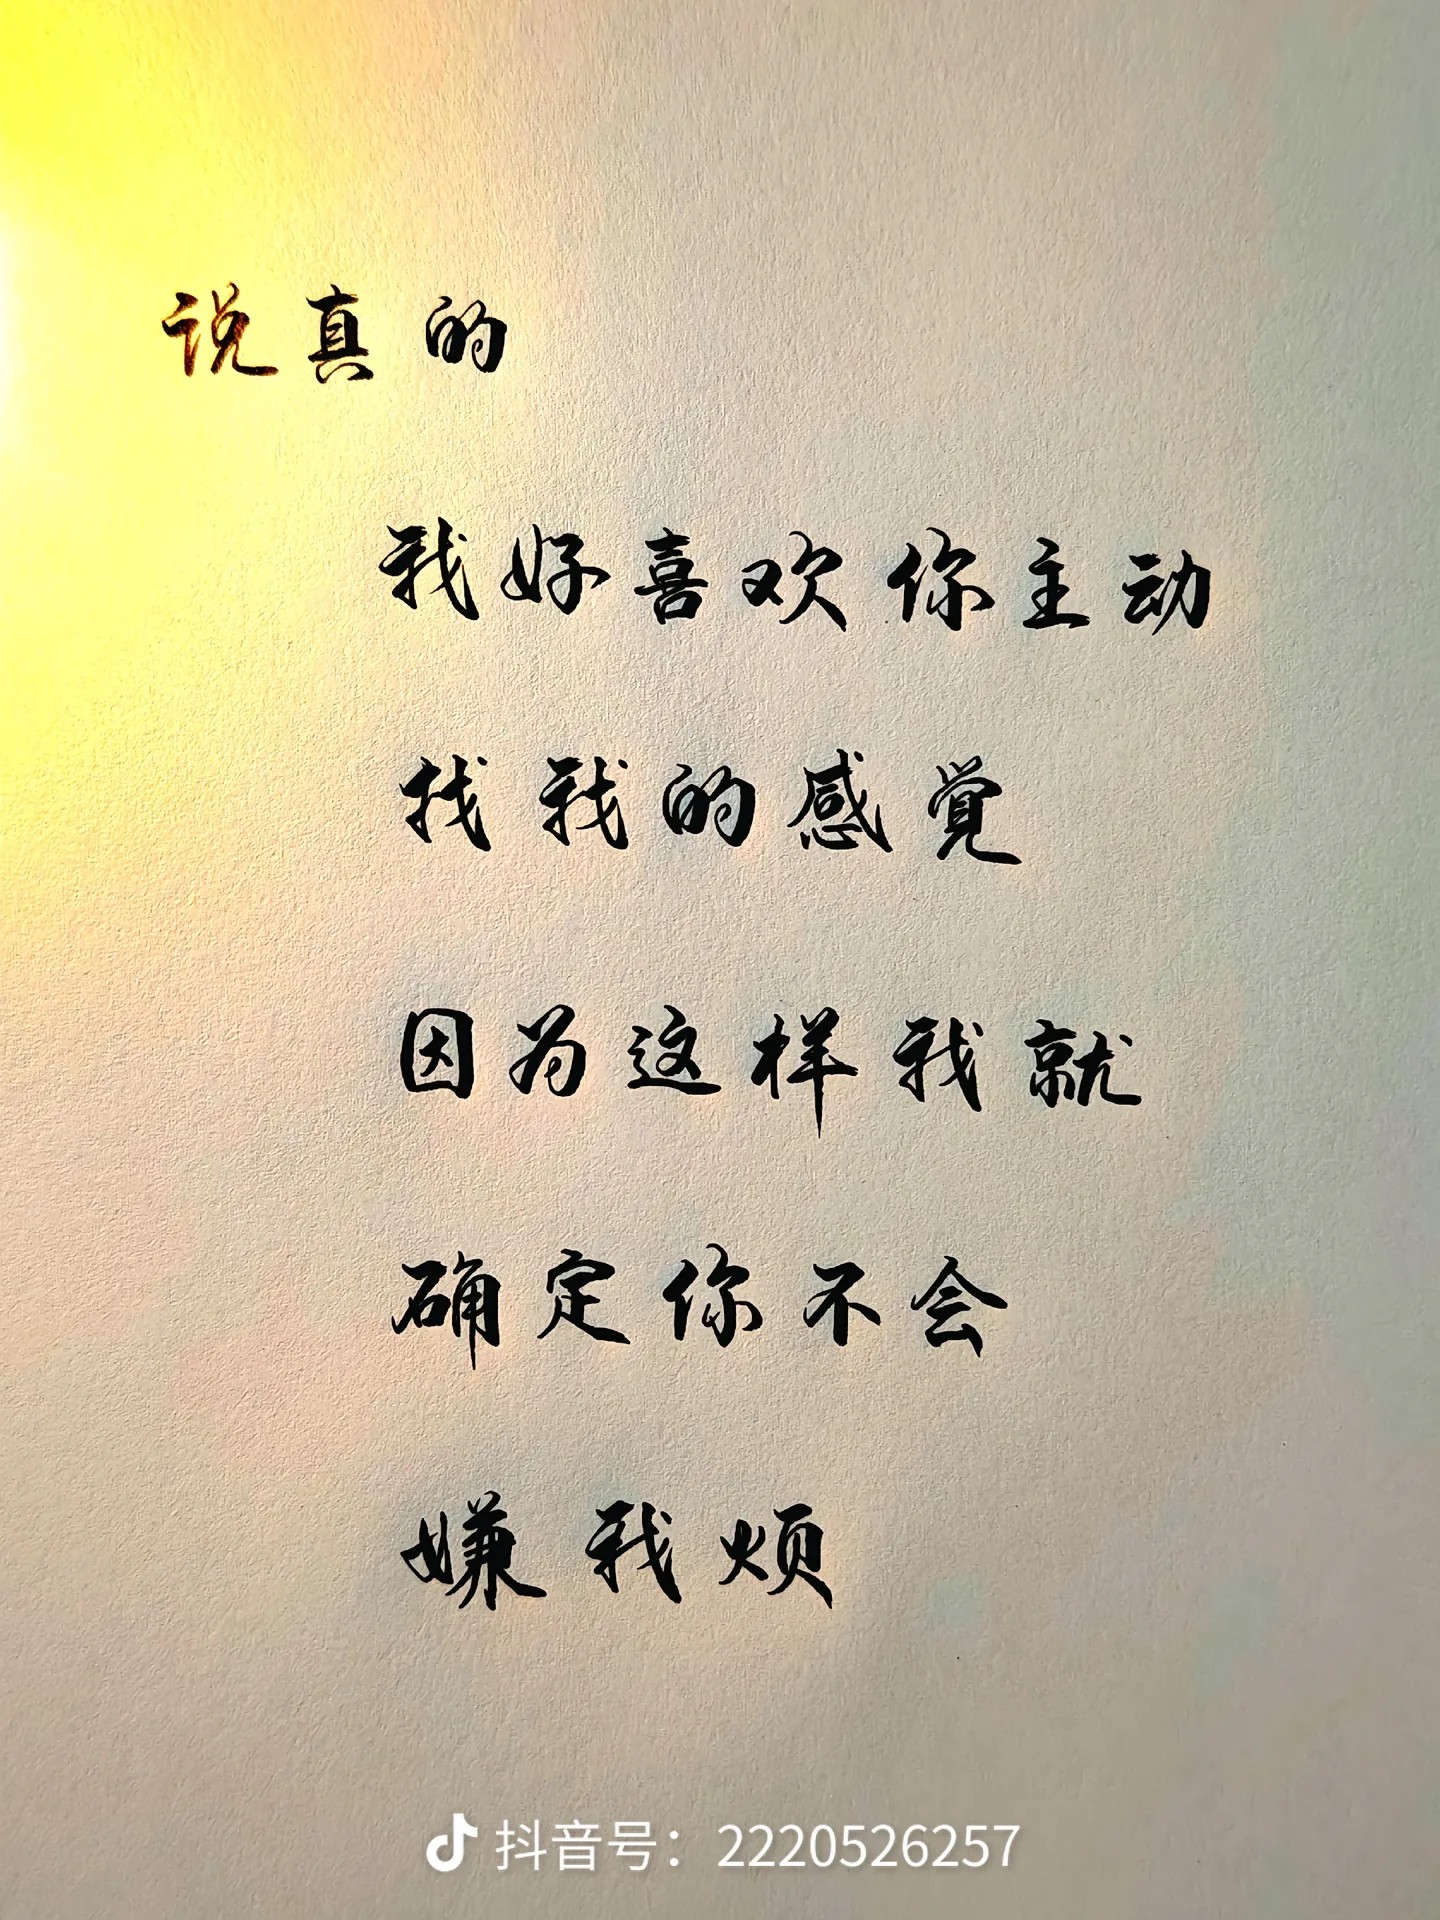 说真的
我好喜欢你主动
找我的感觉
因为这样我就
确定你不会
嫌我烦
抖音号：2220526257